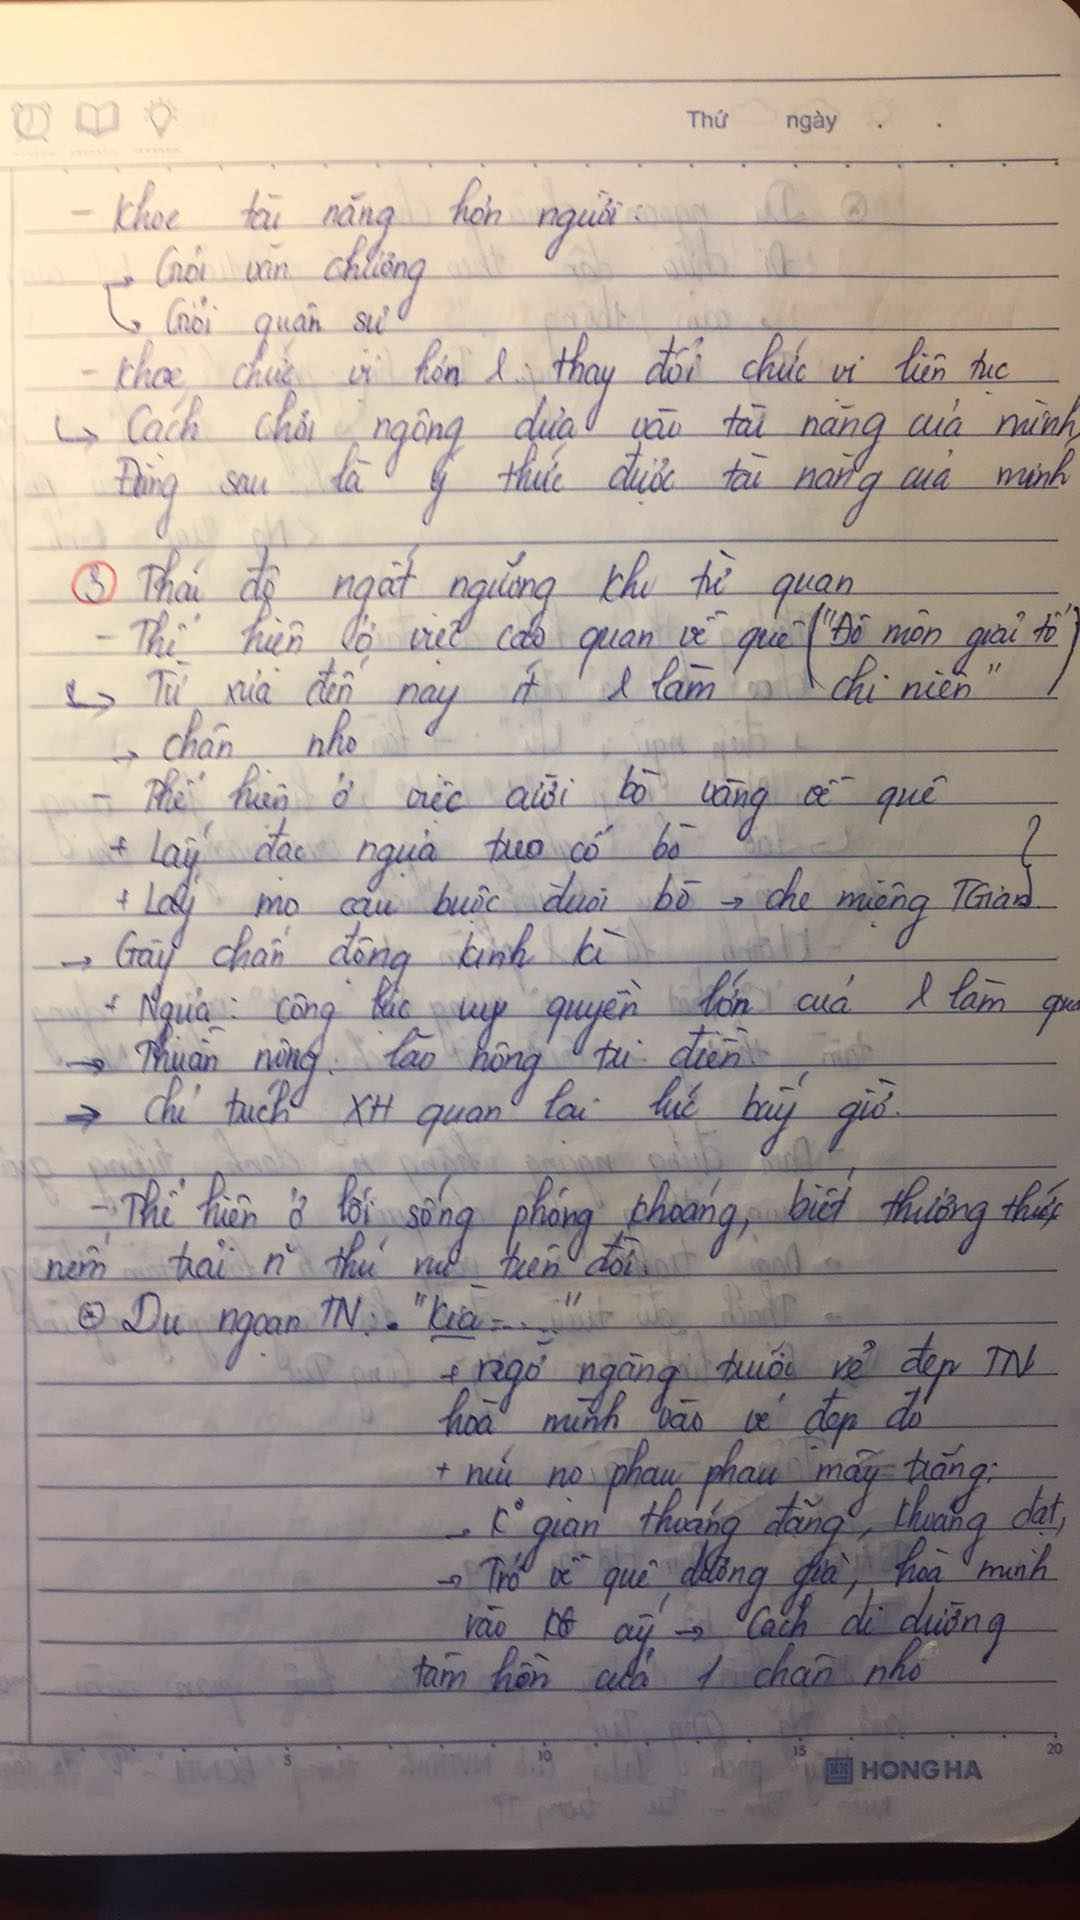 Thứ ngày . .
- Khoe tài năng hơn người:
→ Giỏi văn chương
↳ Giỏi quân sự
- Khoe chức vị hơn l : thay đổi chức vị liên tục
↳ Cách chơi ngông dựa vào tài năng của mình
Đằng sau là ý thức được tài năng của mình
③ Thái độ ngất ngưởng khi từ quan
- Thể hiện ở việc cáo quan về quê ("Đô môn giải tổ
↳ Từ xưa đến nay ít l làm chi niên")
→ chân nho
- Thể hiện ở việc cưỡi bò vàng về quê
+ Lấy đạc ngựa treo cổ bò
+ Lấy mo cau buộc đuôi bò → che miệng TGian
→ Gây chấn động kinh kì
+ Ngựa: công lực uy quyền lớn của l làm qua
→ Thuần nông: lão nông tri điền
⇒ Chỉ trích XH quan lại lúc bấy giờ.
- Thể hiện ở lối sống phóng khoáng, biết thưởng thức
nếm trải n thú vui trên đời.
⊛ Du ngoạn TN: . "Kìa ... "
+ ngỡ ngàng trước vẻ đẹp TN
hoà mình vào vẻ đẹp đó
+ núi nọ phau phau mây trắng:
→ K° gian thoáng đãng, khoáng đạt,
→ Trở về quê dưỡng già, hoà mình
vào ấy → Cách di dưỡng
tâm hồn của 1 chân nho
5 10 15 20
HONG HA